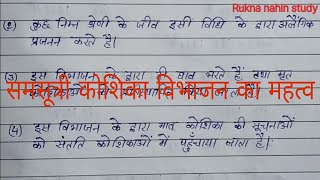 Rukna nahin study
(2) कुछ निम्न श्रेणी के जीव इसी विधि के द्वारा अलैंगिक
प्रजनन करते है।
(3) इस विभाजन के द्वारा ही घाव भरते हैं तथा मृत
समसूत्री कोशिका विभाजन का महत्व
(4) इस विभाजन के द्वारा मातृ कोशिका की सूचनाओं
को संतति कोशिकाओं में पहुँचाया जाता है।